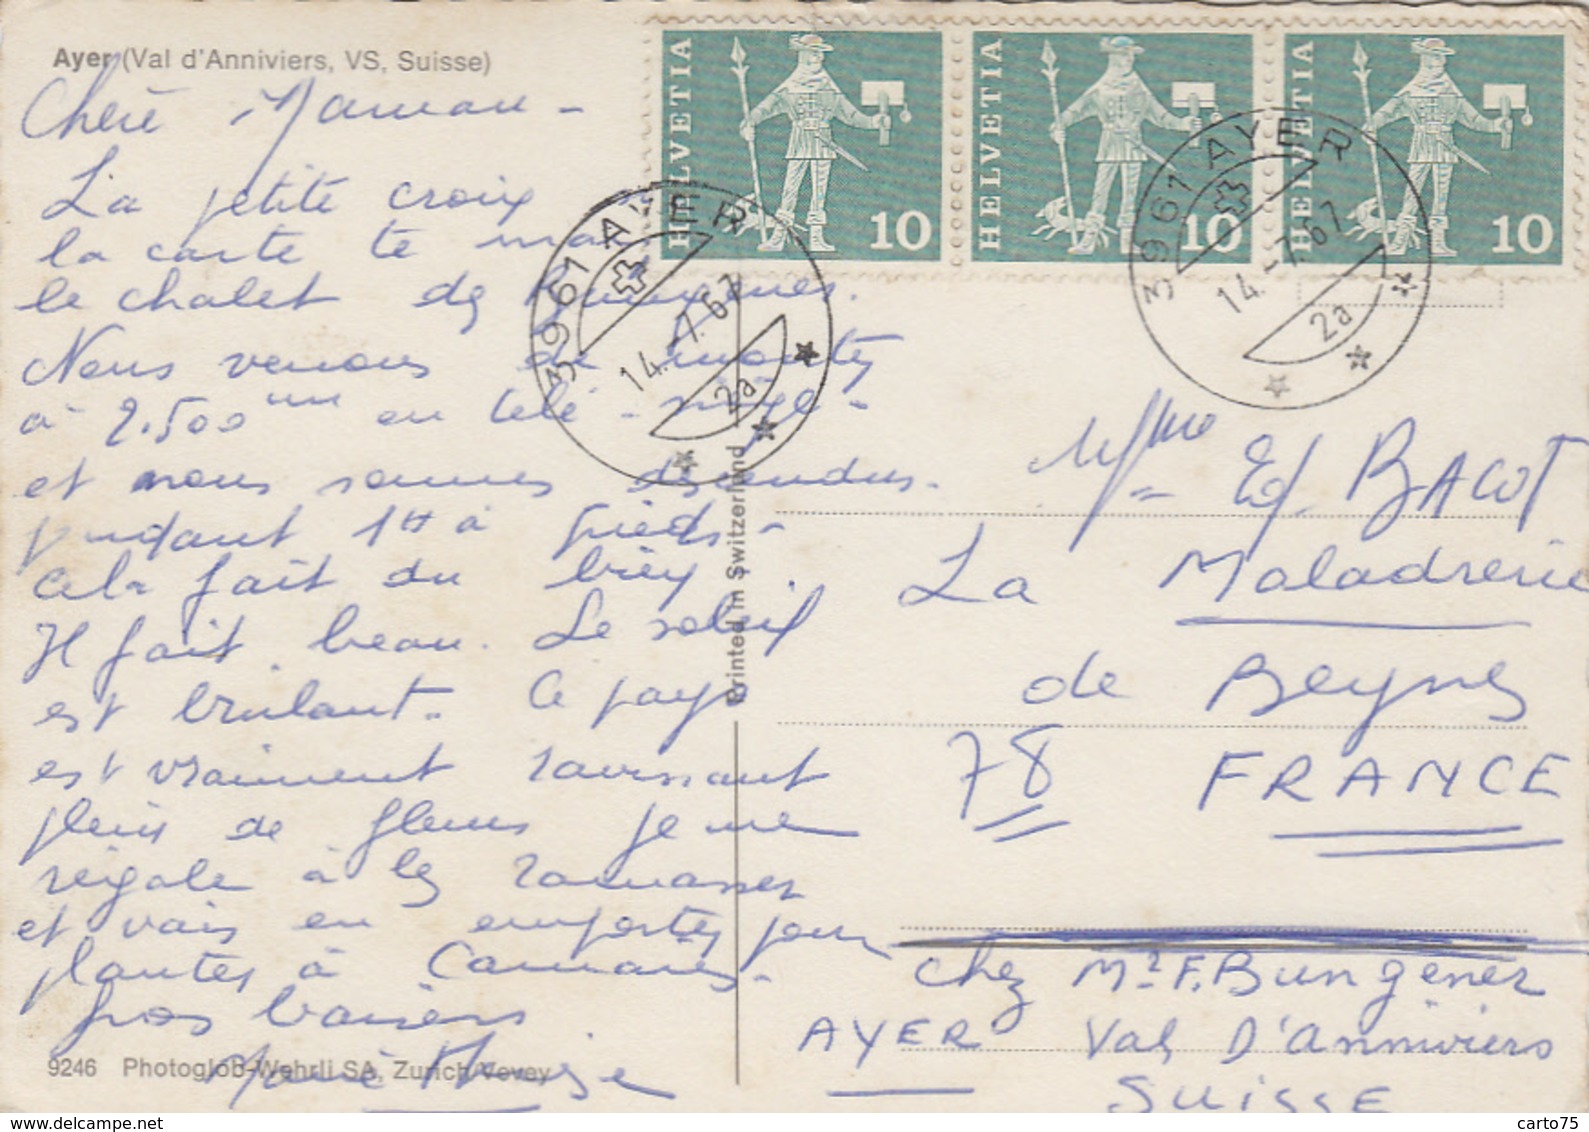 Ayer (Val d'Anniviers, VS, Suisse)
Chère Maman -
La petite croix sur
la carte te
le chalet des Bungener.
Nous venons de monter
à 2.500 en télé-siège -
et nous sommes descendus.
pendant 1H à pieds -
cela fait du bien
Il fait beau. Le soleil
est brulant - Ce pays
est vraiment ravissant
plein de fleurs je me
régale à les ramasser
et vais en emporter pour
planter à Camarès -
gros baisers
Marie
9246 Photoglob-Wehrli SA, Zurich/Vevey
Printed in Switzerland
HELVETIA 10
HELVETIA 10
HELVETIA 10
3961 AYER
14.-7.67
2a
3961 AYER
14.-7.67
2a
Mme Ed. BACOT
La Maladrerie
de Beynes
78 FRANCE
chez Mr F. Bungener
AYER Val D'Anniviers
SUISSE
delcampe.net
carto75